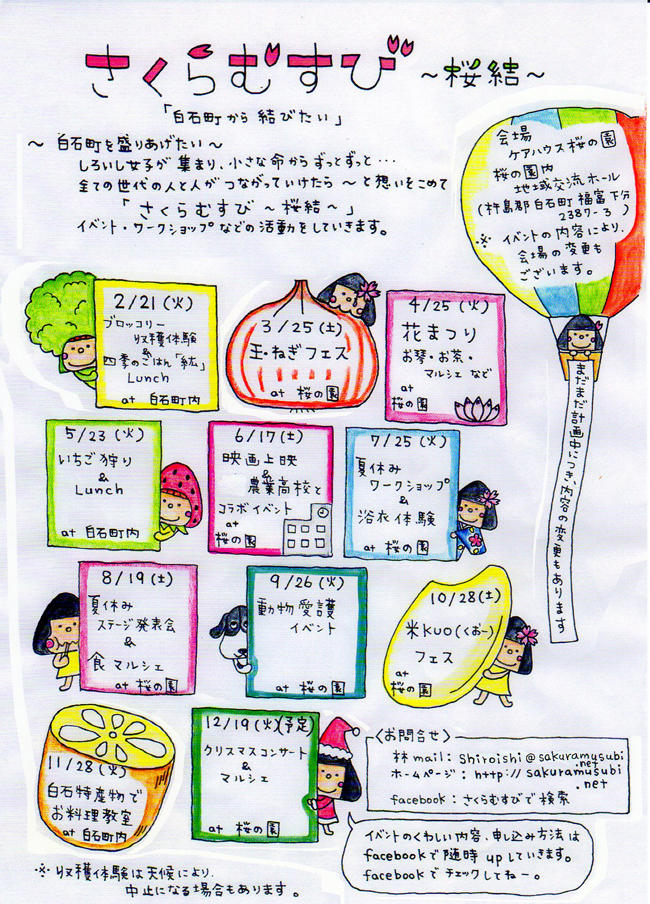 さくらむすび ～桜結～
「白石町から 結びたい」
～ 白石町を盛りあげたい ～
しろいし女子が 集まり、小さな命からずっとずっと…
全ての世代の人と人が つながっていけたら ～と想いをこめて
「さくらむすび ～桜結～ 」
イベント・ワークショップなどの活動をしていきます。
会場
ケアハウス桜の園
桜の園内
地域交流ホール
(杵島郡白石町福富下分
2387-3 )
※ イベントの内容により、
会場の変更も
ございます。
まだまだ計画中につき、内容の変更もあります
2/21 (火)
ブロッコリー
収穫体験
&
四季のごはん「紘」
Lunch
at 白石町内
3/25(土)
玉・ねぎフェス
at 桜の園
4/25(火)
花まつり
お琴・お茶・
マルシェ など
at
桜の園
5/23 (火)
いちご狩り
&
Lunch
at 白石町内
6/17(土)
映画上映
&
農業高校と
コラボイベント
at
桜の園
7/25(火)
夏休み
ワークショップ
&
浴衣体験
at 桜の園
8/19(土)
夏休み
ステージ発表会
&
食マルシェ
at 桜の園
9/26(火)
動物愛護
イベント
at 桜の園
10/28(土)
米KUO(くおー)
フェス
at
桜の園
11/28(火)
白石特産物で
お料理教室
at 白石町内
12/19(火)(予定)
クリスマスコンサート
&
マルシェ
at 桜の園
〈お問合せ〉
林 mail : shiroishi@sakuramusubi
.net
ホームページ : http://sakuramusubi
.net
facebook : さくらむすびで検索
イベントのくわしい内容、申し込み方法は
facebookで随時upしていきます。
facebookでチェックしてねー。
※ 収穫体験は天候により、
中止になる場合もあります。